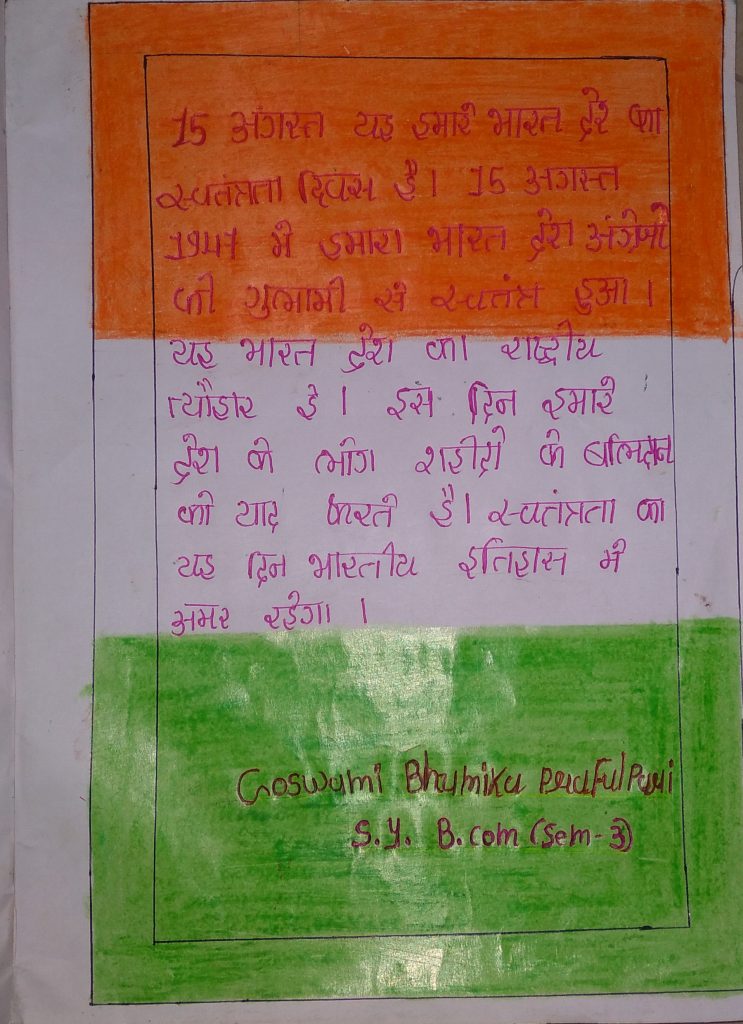 15 अंगस्त यह हमारे भारत देश का
स्वतंत्रता दिवस है। 15 अगस्त
1947 मे हमारा भारत देश अंग्रेजो
की गुलामी से स्वतंत्र हुआ।
यह भारत देश का राष्ट्रीय
त्यौहार है। इस दिन हमारे
देश के लोग शहीदो के बलिदान
को याद करते है। स्वतंत्रता का
यह दिन भारतीय इतिहास मे
अमर रहेगा।
Goswami Bhumika
S.Y. B.com (Sem-3)